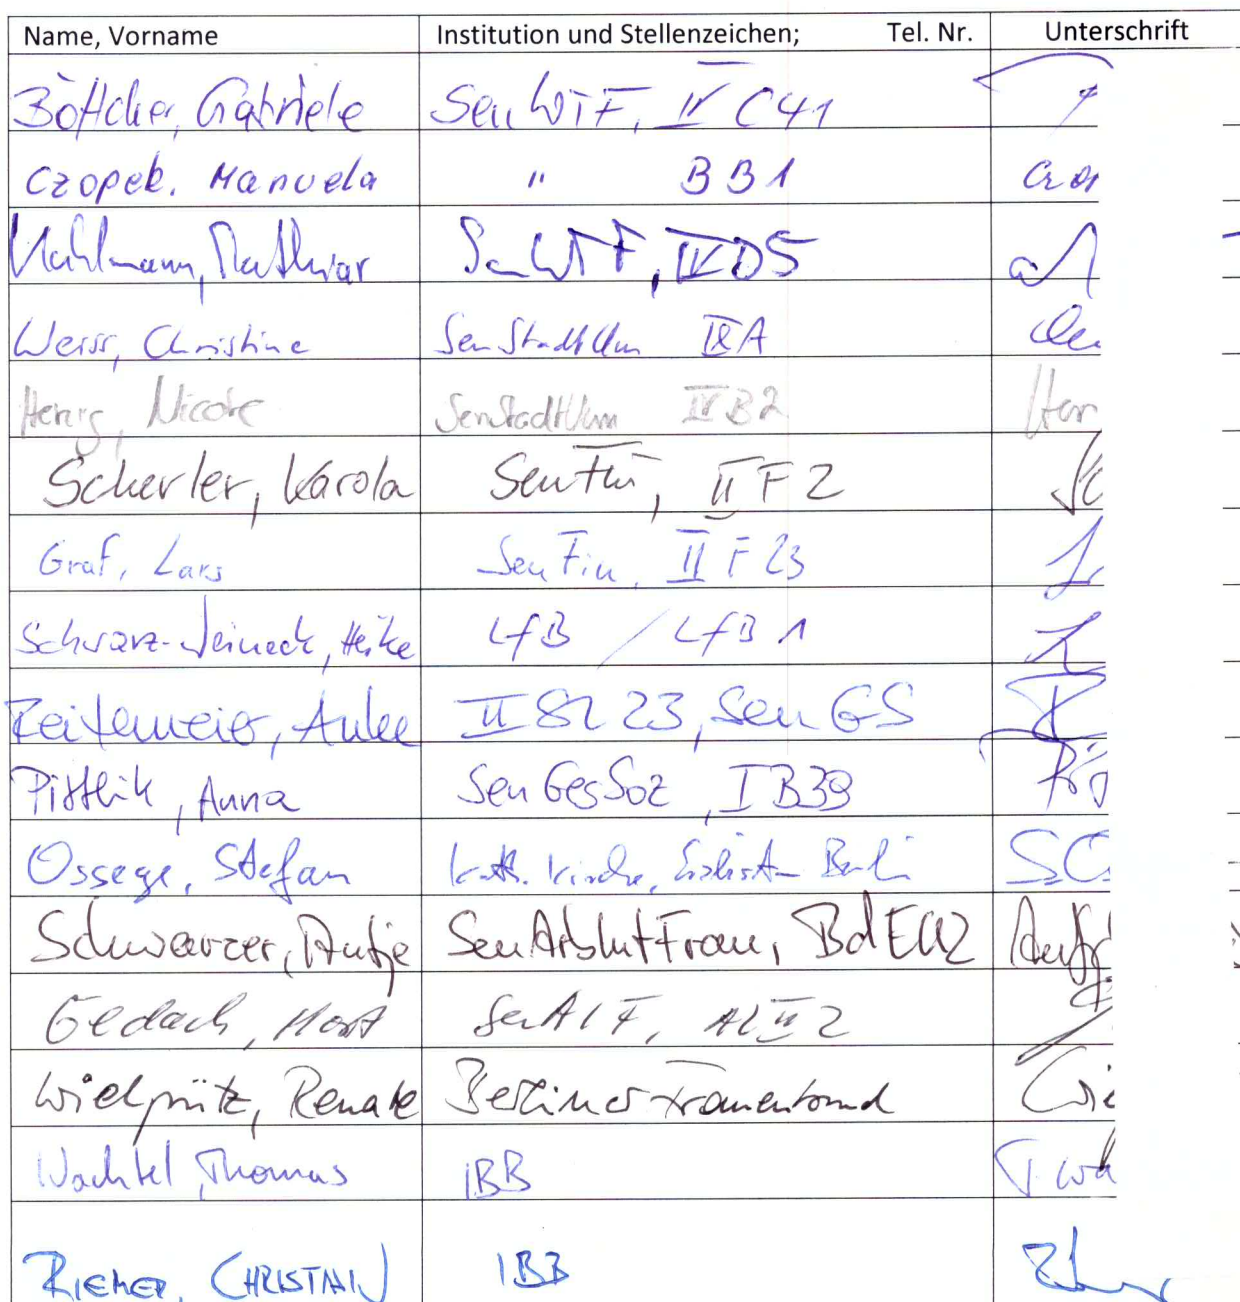 Name, Vorname Institution und Stellenzeichen; Tel. Nr. Unterschrift
Böttcher, Gabriele SenWTF, IV C41
Czopek. Manuela " BB1
Mathiar SenWTF, IV D5
Weiss, Christine SenStadtUm IX A
Henig, Nicole SenStadtUm IV B2
Scherler, Karola SenFin, II F 2
Graf, Lars SenFin, II F 23
Schwarz-Jeineck, Heike LfB / LfB 1
Reitemeier, Anke II 23, Sen GS
Pittlik, Anna SenGesSoz, I B39
Ossege, Stefan kath. Kirche, Berlin
Schwarzer, Antje SenArbIntFrau,
Gedach, Horst SenAIF, II 2
Wielpütz, Renate Berliner Frauenbund
Wachtel, Thomas IBB
RIEMER, CHRISTIAN IBB